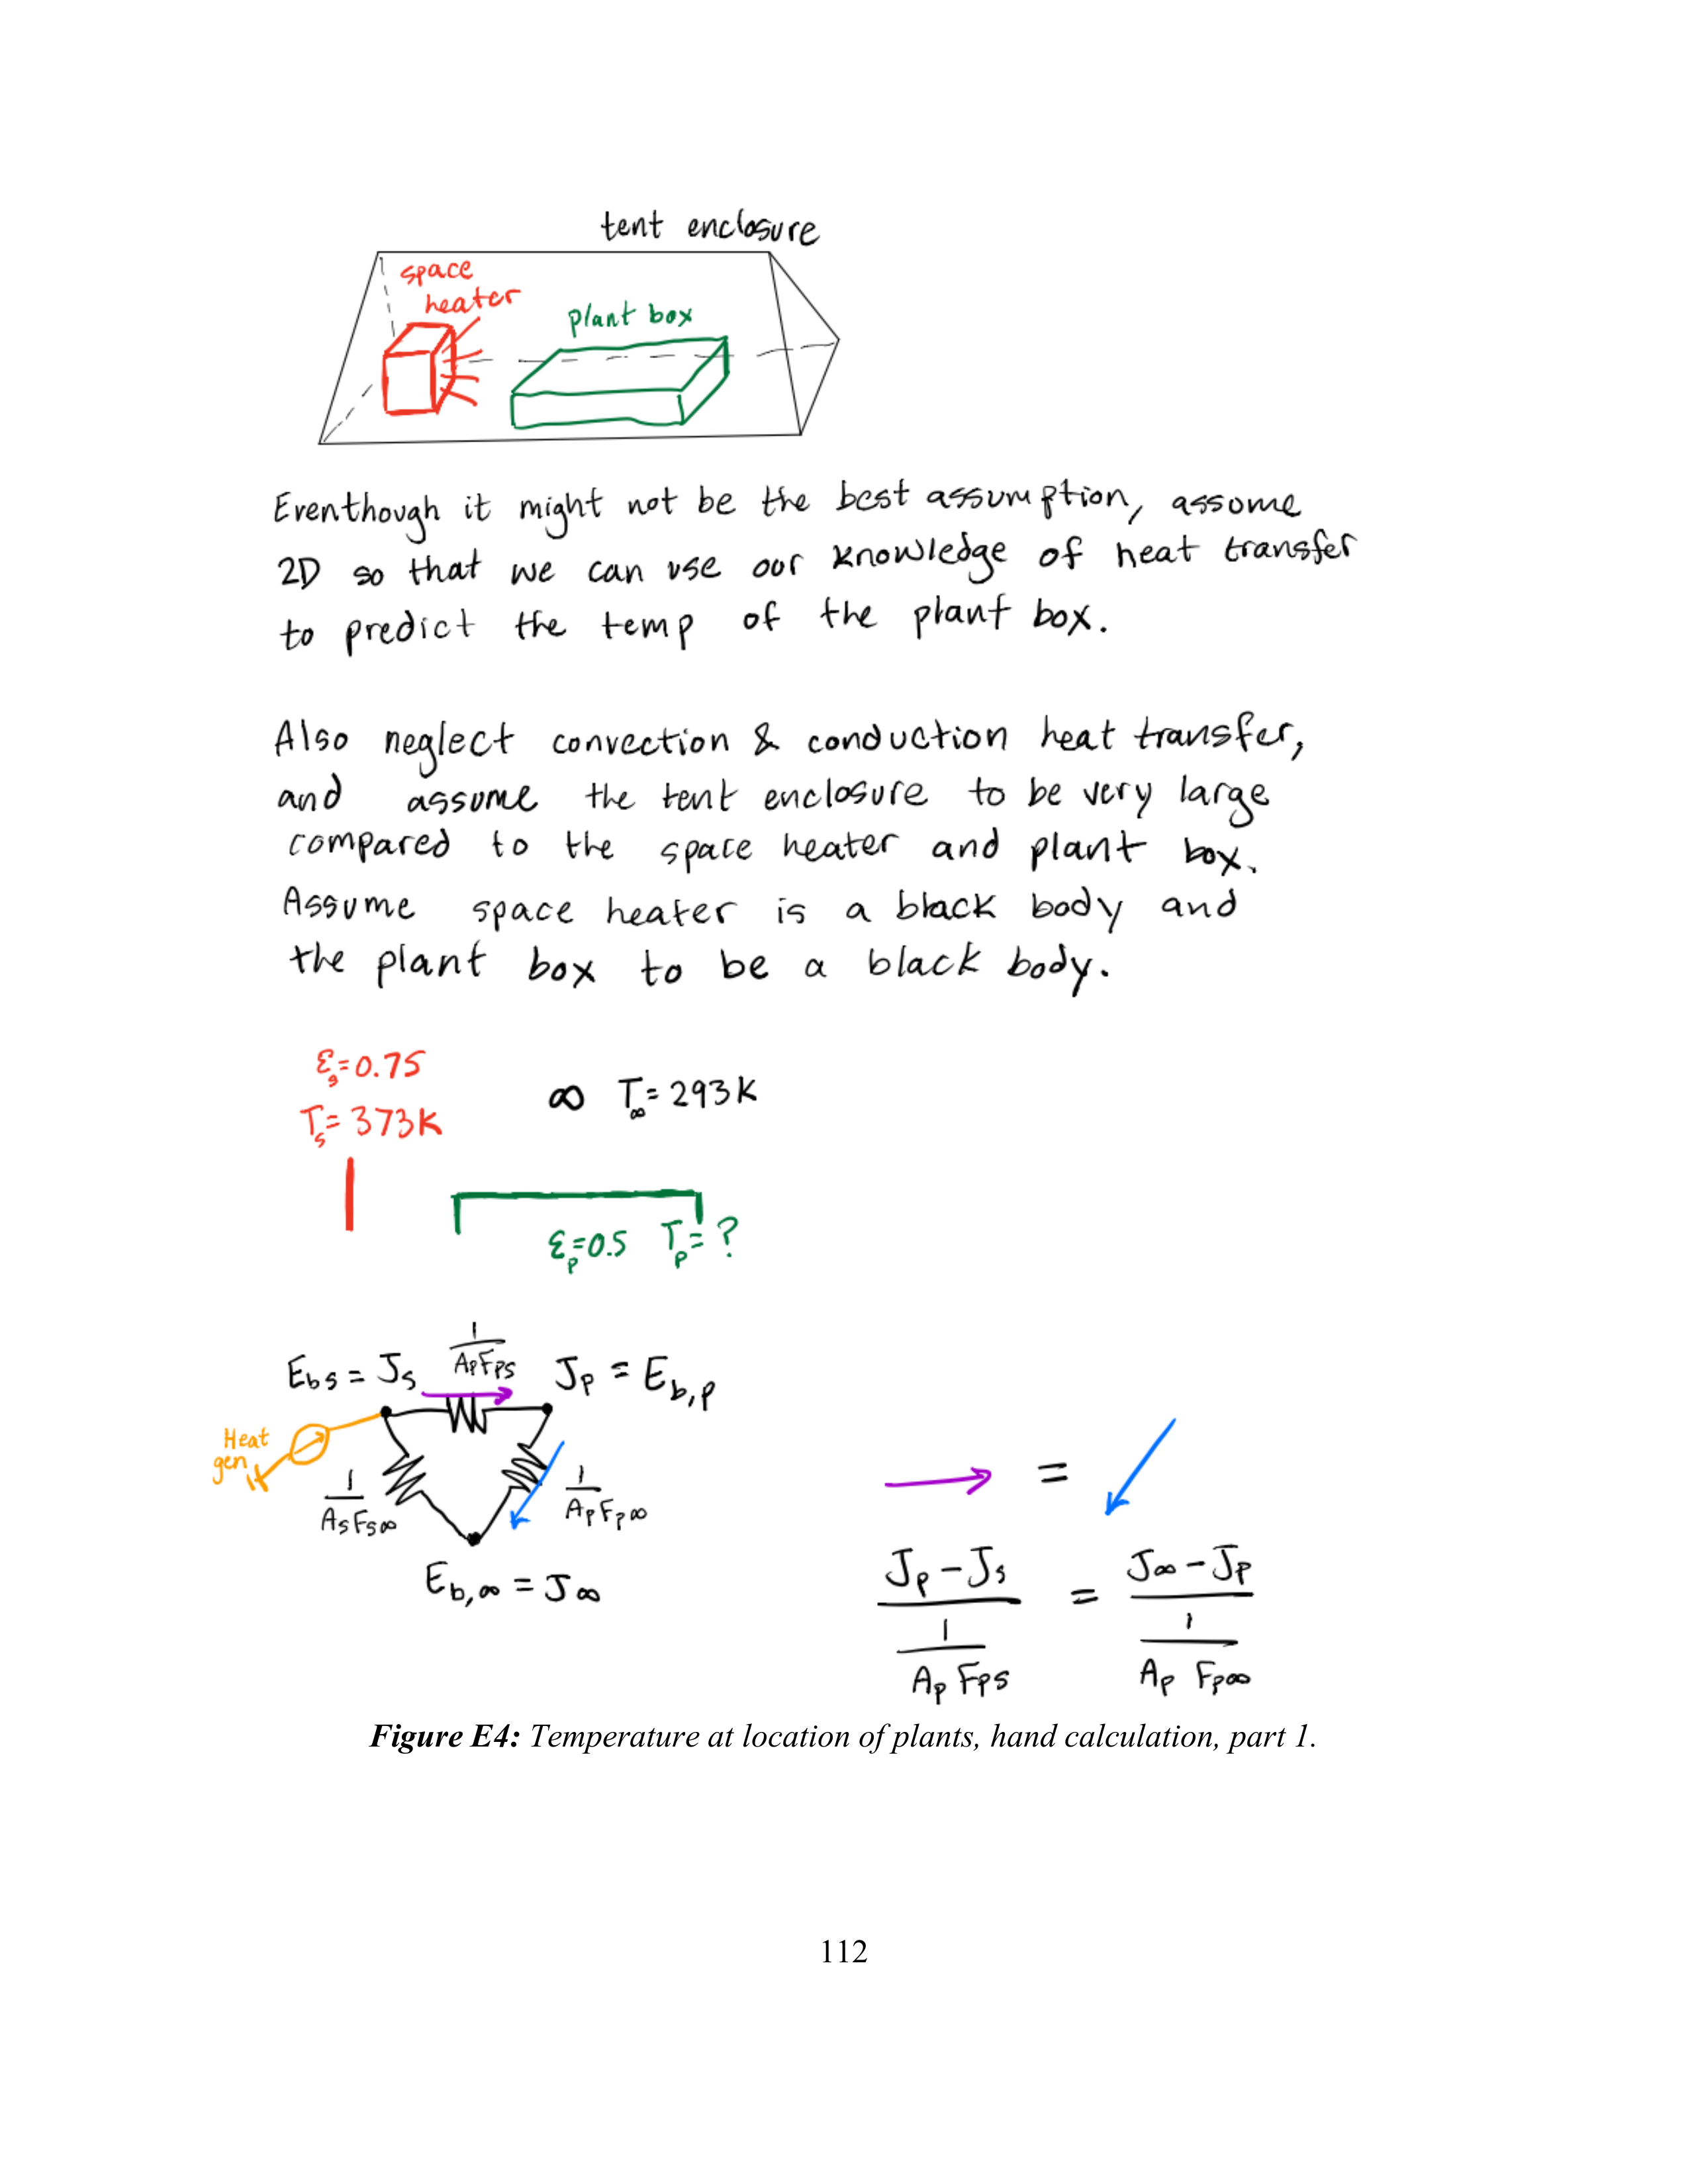 tent enclosure
space
heater
plant box
Eventhough it might not be the best assumption, assume
2D so that we can use our knowledge of heat transfer
to predict the temp of the plant box.
Also neglect convection & conduction heat transfer,
and assume the tent enclosure to be very large
compared to the space heater and plant box.
Assume space heater is a black body and
the plant box to be a black body.
εs=0.75
Ts=373K
∞ T∞=293K
εp=0.5 Tp=?
Ebs = Js 1/ApFps Jp = Eb,p
Heat
gen
1/AsFs∞
1/ApFp∞
Eb,∞ = J∞
=
(Jp-Js)/(1/(Ap Fps)) = (J∞-Jp)/(1/(Ap Fp∞))
Figure E4: Temperature at location of plants, hand calculation, part 1.
112